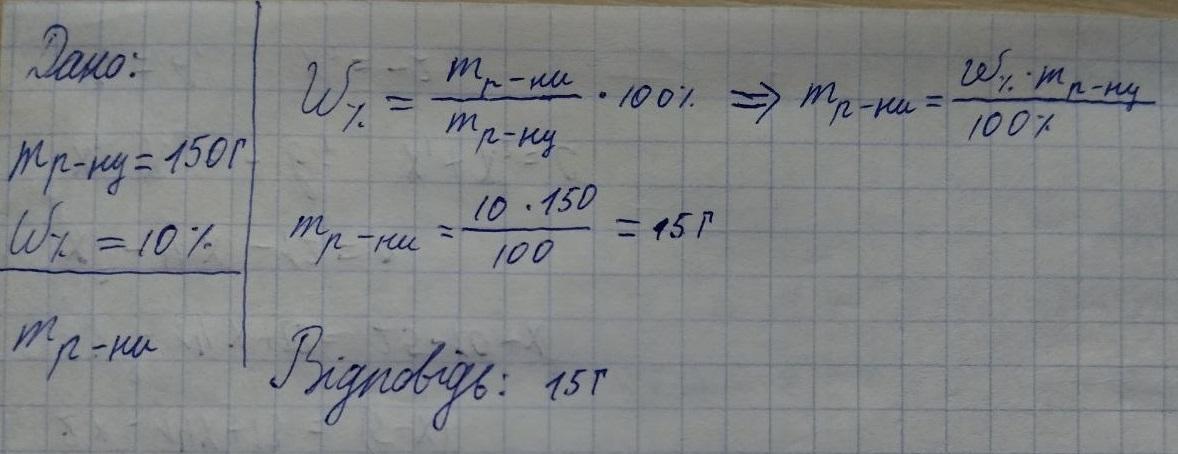 Дано:
m р-ну = 150 г
W% = 10%
m р-ни
W% = m р-ни / m р-ну · 100% ⇒ m р-ни = W% · m р-ну / 100%
m р-ни = 10 · 150 / 100 = 15 г
Відповідь: 15 г